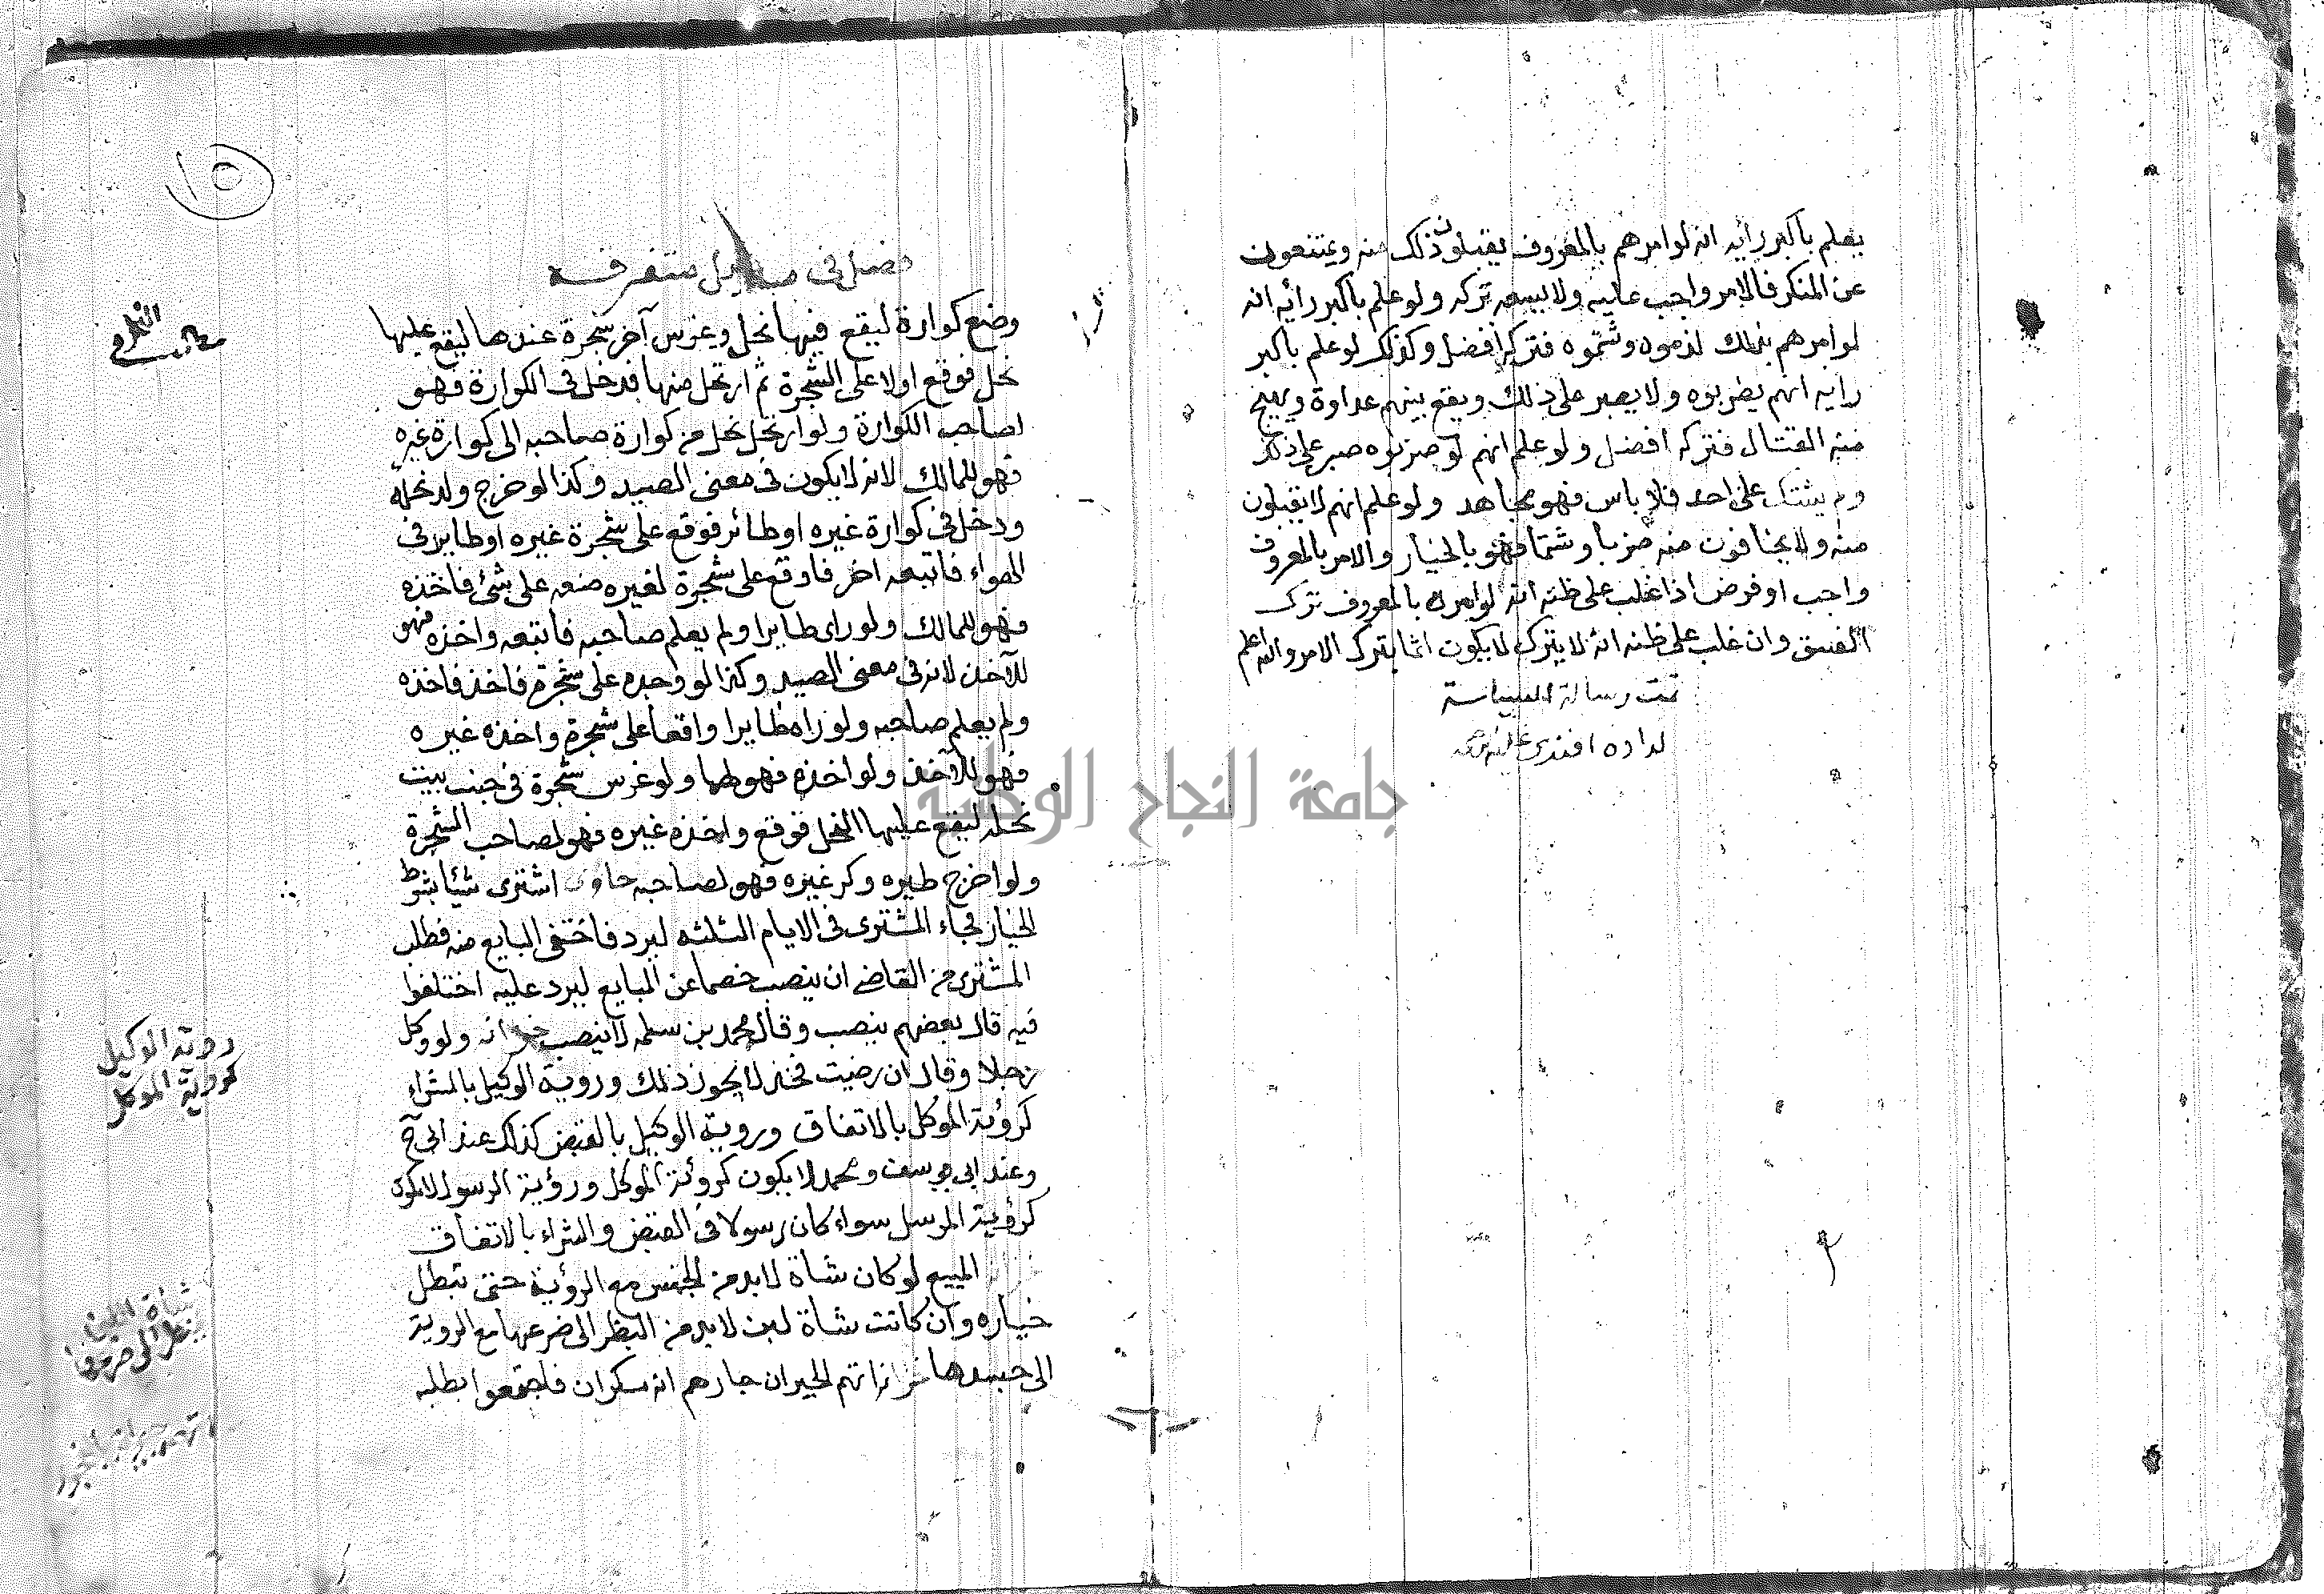 يعلم بأكبر رأيه انه لو امرهم بالمعروف يقبلون ذلك منه ويمتنعون
عن المنكر فالامر واجب عليه ولا يسعه تركه ولو علم بأكبر رأيه انه
لو امرهم بذلك لذموه وشتموه فتركه افضل وكذلك لو علم بأكبر
رايه انهم يضربوه ولا يصبر على ذلك ويقع بينهم عداوة ويهيج
منه القتال فتركه افضل ولو علم انهم لو ضربوه صبر على ذلك
ولم يشتك على احد فلا باس فهو مجاهد ولو علم انهم لا يقبلون
منه ولا يخافون منه ضربا وشتما فهو بالخيار والامر بالمعروف
واجب او فرض اذا غلب على ظنه انه لو امره بالمعروف ترك
الفسق وان غلب على ظنه انه لا يترك لا يكون اثما بترك الامر والله اعلم
تمت رسالة السياسة
لداده افندى عليه
١٥
فصل فى مسايل متفرقه
وضع كوارة ليقع فيها نحل وغرس آخر شجرة عندها ليقع عليها
نحل فوقع اولا على الشجرة ثم ارتحل منها فدخل فى الكوارة فهو
لصاحب الكوارة ولو ارتحل نحل من كوارة صاحبه الى كوارة غيره
فهو للمالك لانه لا يكون فى معنى الصيد وكذا لو خرج ولد نحله
ودخل فى كوارة غيره او طائر فوقع على شجرة غيره او طاير فى
الهواء فاتبعه اخر فاوقع على شجرة لغيره على شئ فاخذه
فهو للمالك ولو راى طايرا ولم يعلم صاحبه فاتبعه واخذه فهو
للآخذ لانه فى معنى الصيد وكذا لو وجده على شجرة فاخذ فاخذه
ولم يعلم صاحبه ولو راه طايرا واقعا على شجرة واخذه غيره
فهو للآخذ ولو اخذه فهو لهما ولو غرس شجرة فى جنب بيت
نحله ليقع عليها النحل فوقع واخذه غيره فهو لصاحب الشجرة
ولو اخرج طيره وكر غيره فهو لصاحبه حاوى اشترى شيئا بشرط
الخيار فجاء المشترى فى الايام الثلثه ليرد فاختفى البايع منه فطلب
المشترى من القاضى ان ينصب خصما عن البايع ليرد عليه اختلفوا
فيه قال بعضهم ينصب وقال محمد بن سلمه لا ينصب خزانه ولو وكل
رجلا وقال ان رضيت فخذ لا يجوز ذلك وروية الوكيل بالشراء
كرؤية الموكل بالاتفاق وروية الوكيل بالقبض كذلك عند ابى ح
وعند ابى يوسف ومحمد لا يكون كرؤية الموكل ورؤية الرسول لا يكون
كرؤية المرسل سواء كان رسولا فى القبض والشراء بالاتفاق
المبيع لو كان شاة لابد من الجس مع الرؤية حتى تبطل
خياره وان كانت شاة لبن لابد من النظر الى ضرعها مع الروية
الى جسدها اتهم الجيران جارهم انه سكران فاجتمعوا بطلبه
روية الوكيل
كروية الموكل
جامعة النجاح الوطنية